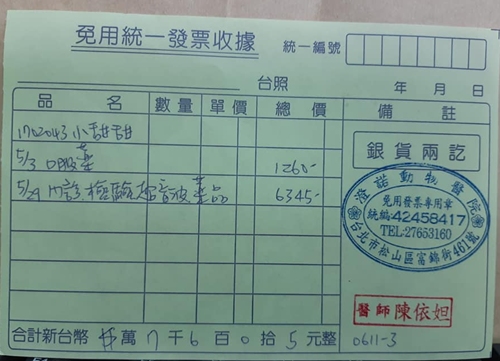 免用統一發票收據
統一編號
台照 年 月 日
品 名 數量 單價 總價 備註
1702043 小甜甜
5/3 口服藥 1260-
5/29 內診、檢驗、超音波、藥品 6345-
銀貨兩訖
澄諾動物醫院
免用發票專用章
統編:42458417
TEL:27653160
台北市松山區富錦街461號
醫師 陳依妲
合計新台幣 萬 7 千 6 百 0 拾 5 元整
0611-3